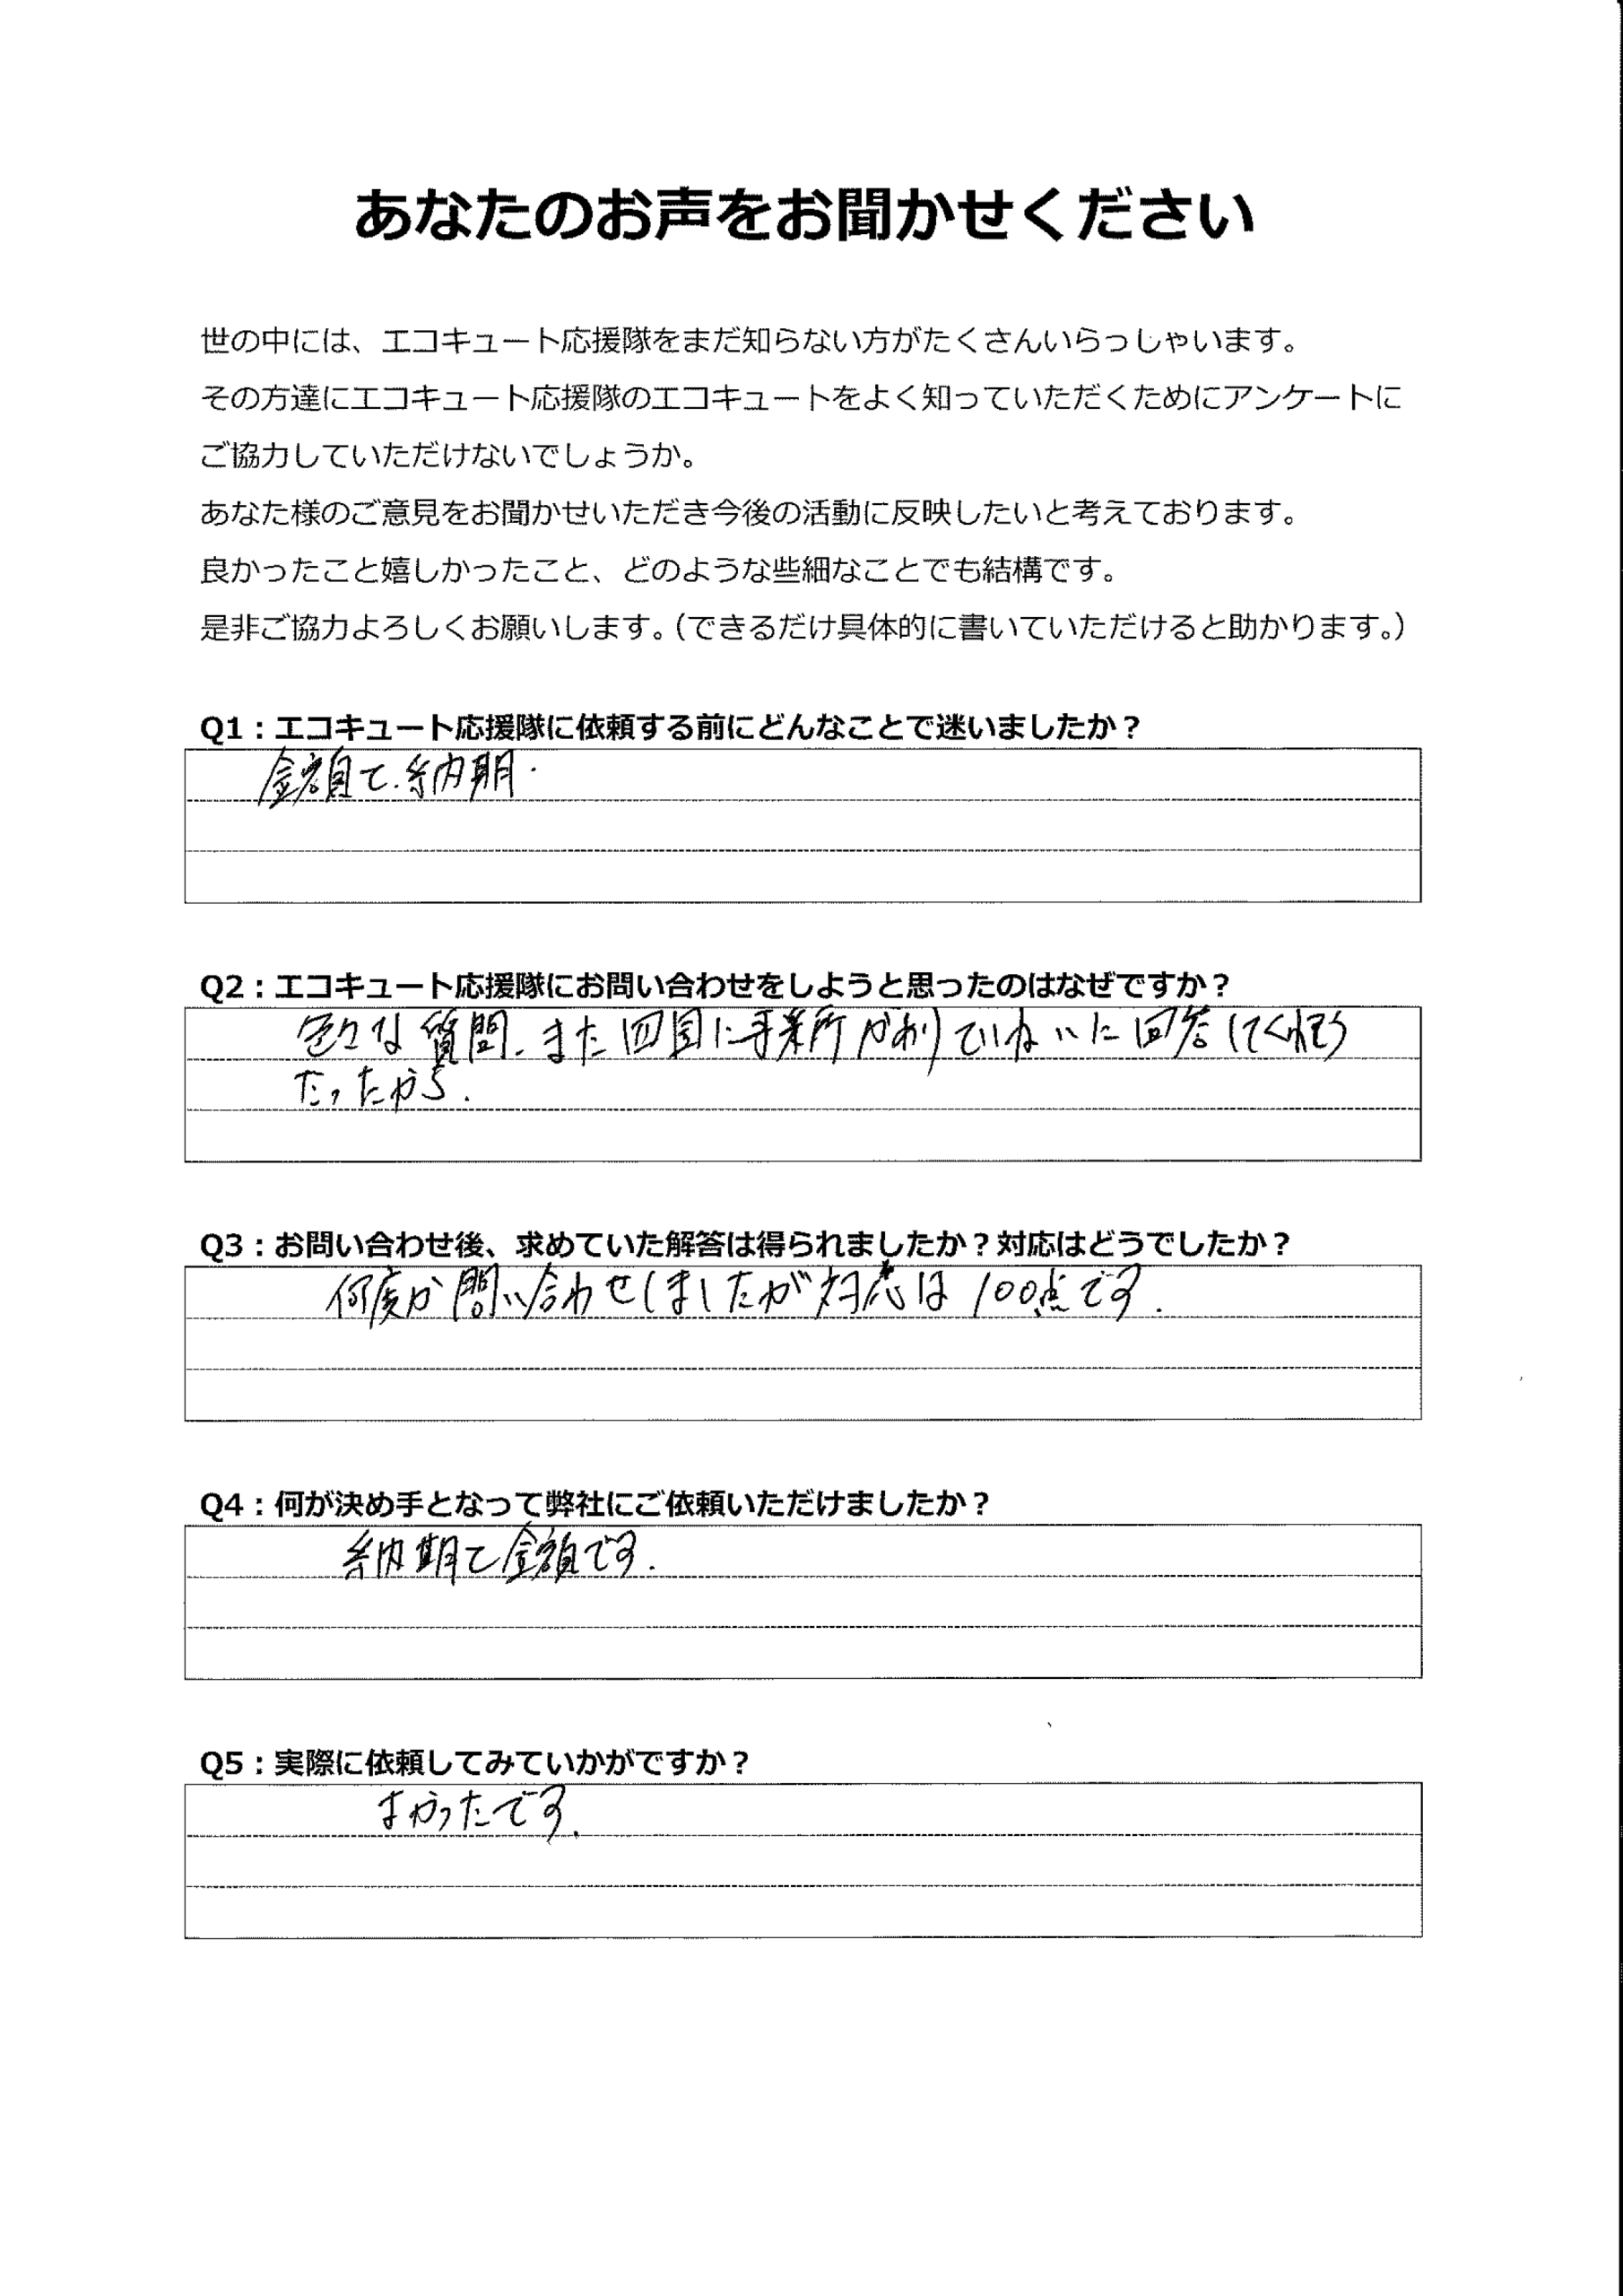 あなたのお声をお聞かせください
世の中には、エコキュート応援隊をまだ知らない方がたくさんいらっしゃいます。
その方達にエコキュート応援隊のエコキュートをよく知っていただくためにアンケートに
ご協力していただけないでしょうか。
あなた様のご意見をお聞かせいただき今後の活動に反映したいと考えております。
良かったこと嬉しかったこと、どのような些細なことでも結構です。
是非ご協力よろしくお願いします。（できるだけ具体的に書いていただけると助かります。）
Q1：エコキュート応援隊に依頼する前にどんなことで迷いましたか？
金額と.納期.
Q2：エコキュート応援隊にお問い合わせをしようと思ったのはなぜですか？
色々な質問.また四国に事業所があり ていねいに回答してくれそう
だったから.
Q3：お問い合わせ後、求めていた解答は得られましたか？対応はどうでしたか？
何度か問い合わせしましたが対応は100点です.
Q4：何が決め手となって弊社にご依頼いただけましたか？
納期と金額です.
Q5：実際に依頼してみていかがですか？
よかったです.